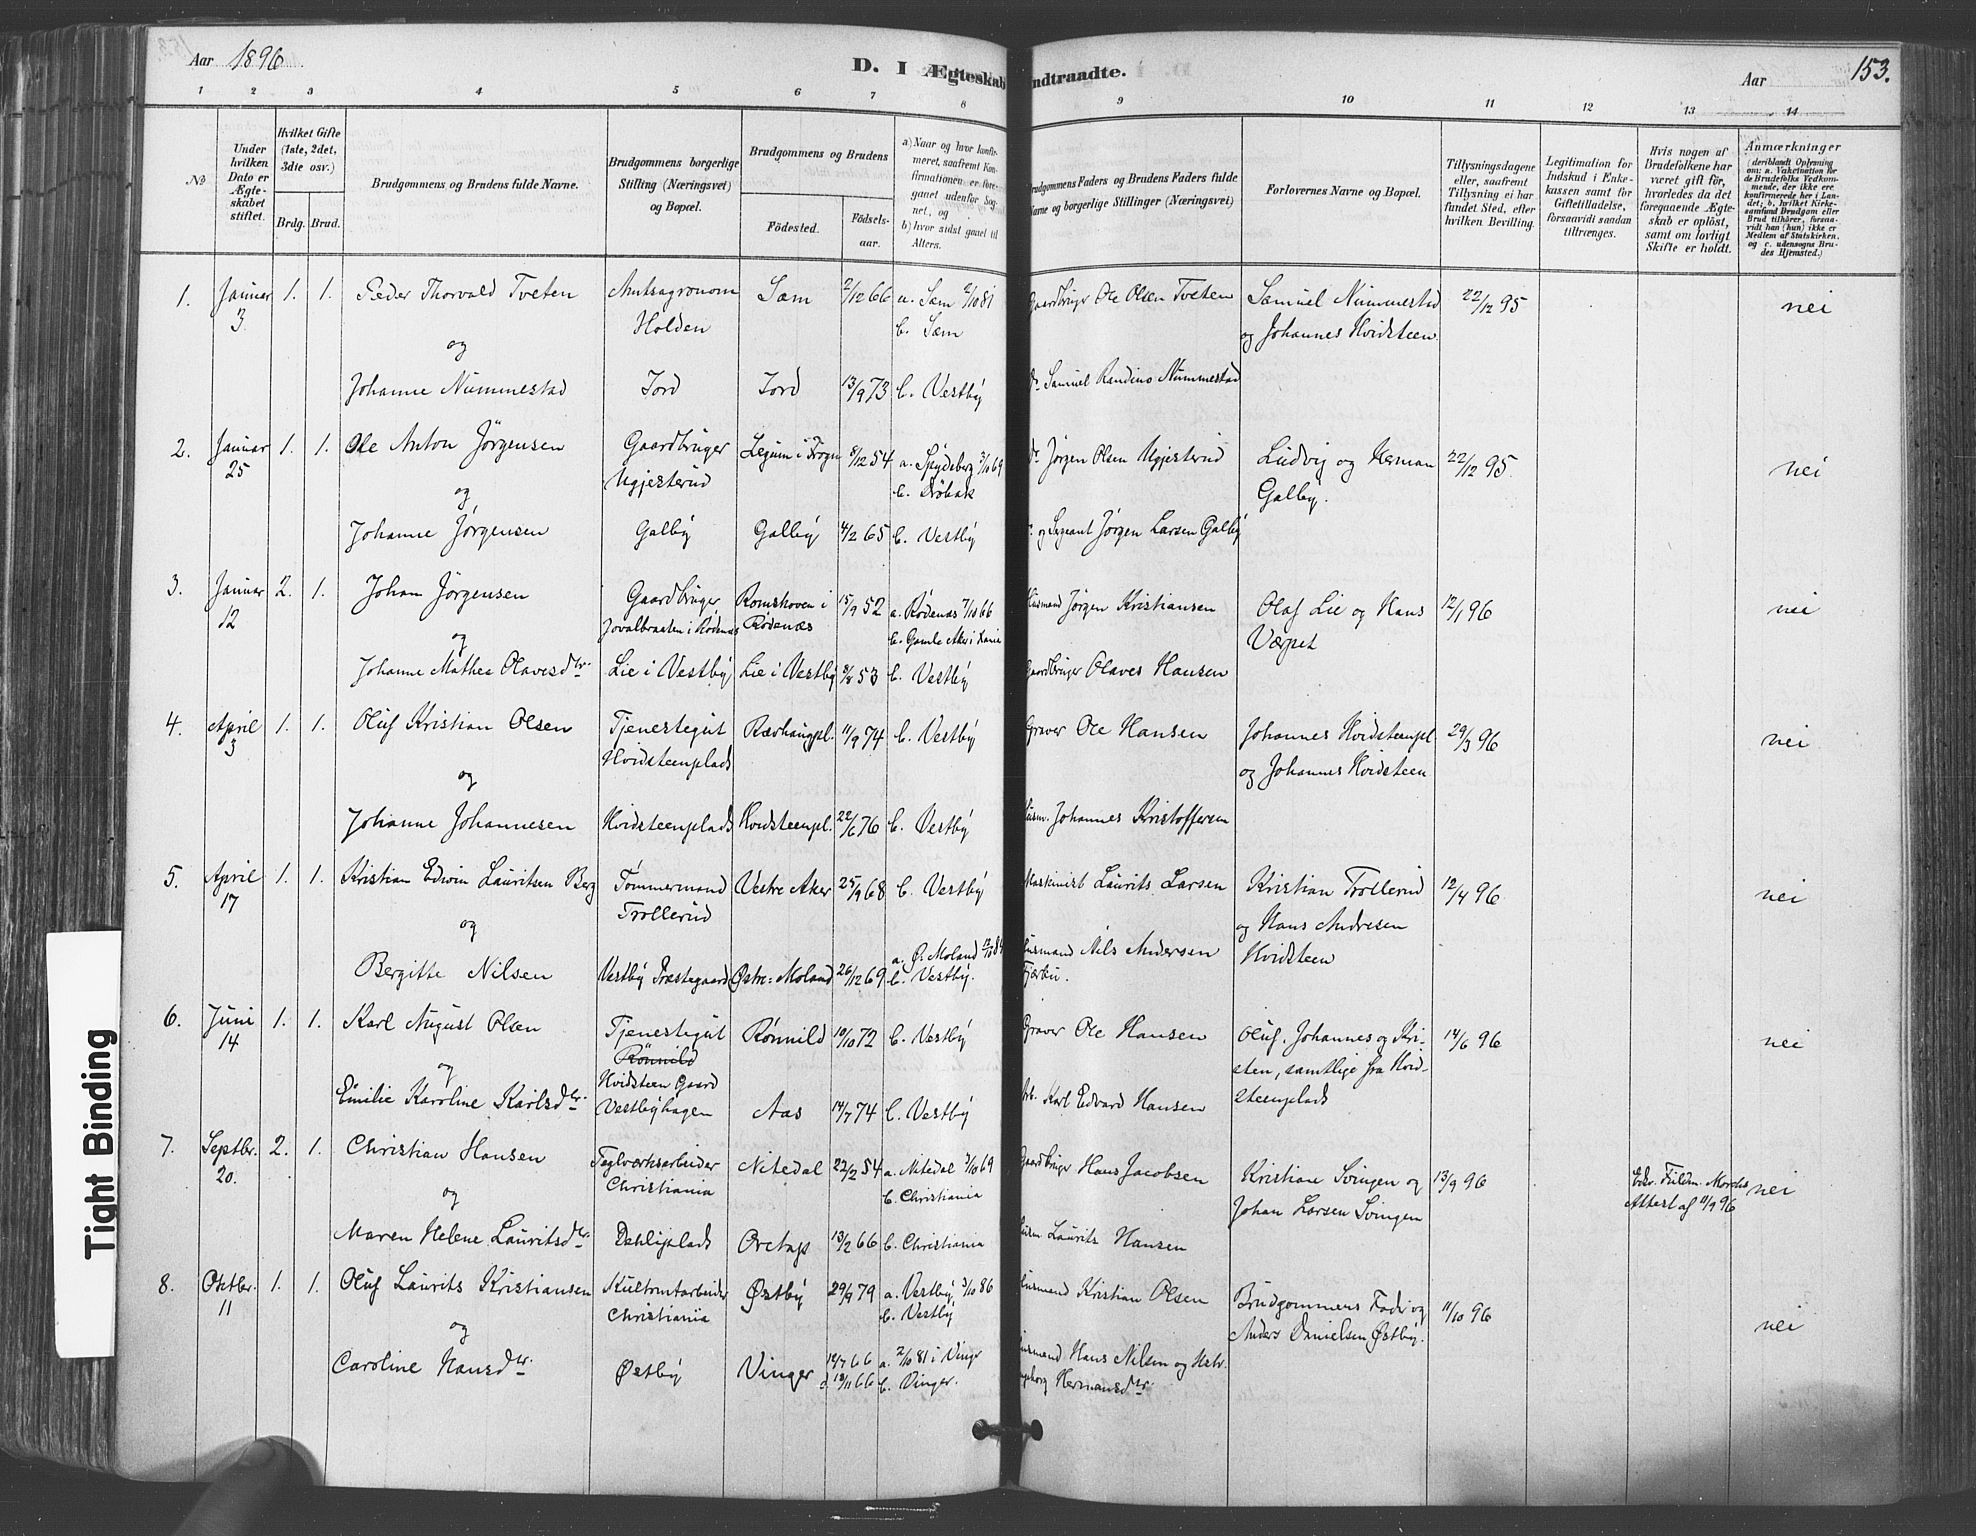 Aar 1896.
D. I Ægteskab indtraadte.
Aar
153.
1 2 3 4 5 6 7 8 9 10 11 12 13 14
№
Under hvilken Dato er Ægteskabet stiftet.
Hvilket Gifte (1ste, 2det, 3die osv.)
Brdg. Brud.
Brudgommens og Brudens fulde Navne.
Brudgommens borgerlige Stilling (Næringsvei) og Bopæl.
Brudgommens og Brudens
Födested.
Födselsaar.
a) Naar og hvor konfirmeret, saafremt Konfirmationen er foregaaet udenfor Sognet, og
b) hvor sidst gaaet til Alters.
Brudgommens Faders og Brudens Faders fulde Navne og borgerlige Stillinger (Næringsvei)
Forlovernes Navne og Bopæl.
Tillysningsdagene eller, saafremt Tillysning ei har fundet Sted, efter hvilken Bevilling.
Legitimation for Indskud i Enkekassen samt for Giftetilladelse, forsaavidt saadan tiltrænges.
Hvis nogen af Brudefolkene har været gift för, hvorledes da det foregaaende Ægteskab er oplöst, samt om lovligt Skifte er holdt.
Anmærkninger
(deriblandt Oplysning om: a. Vakcination for de Brudefolks Vedkommende, der ikke ere konfirmerede her i Landet; b. hvilket Kirkesamfund Brudgom eller Brud tilhörer, forsaavidt han (hun) ikke er Medlem af Statskirken, og c. udensogns Brudes Hjemsted.)
1. Januar 3 1. 1. Peder Thorvald Tveten Amtsagronom Holden Sem 2/12 66 a. Sem 2/10 81 b. Sem Gaardbruger Ole Olsen Tveten Samuel Nummestad og Johannes Hvidsteen 22/12 95 nei
og
Johanne Nummestad Jord Jord 13/9 73 b. Vestby do. Samuel Nummestad
2. Januar 25 1. 1. Ole Anton Jörgensen Gaardbruger i Frogn 8/12 54 a. Spydeberg 3/10 69 b. Dröbak do. Jörgen Olsen Ludvig og Herman Galby. 22/12 95. nei
og
Johanne Jörgensen Galby Galby 4/2 65 b. Vestby og Sergeant Jörgen Larsen Galby
3. Januar 12 2. 1. Johan Jörgensen Gaardbruger i Rödenæs Romshoven i Rödenæs 15/9 52 a. Rödenæs 7/10 66 b. Gamle Aker i Husmand Jörgen Kristiansen Olaf Lie og Hans Værpet 12/1 96 nei
og
Johanne Mathea Olavesdtr. Lie i Vestby Lie i Vestby 53 b. Vestby Gaardbruger Olaves Hansen
4. April 3 1. 1. Oluf Kristian Olsen Tjenestegut Hvidsteenplads Rævhaugpl. 11/9 74 b. Vestby Graver Ole Hansen Johannes Hvidsteenpl. og Johannes Hvidsteen 29/3 96 nei
og
Johanne Johannesen Hvidsteenplads Hvidsteenpl. 22/6 76 b. Vestby Husm. Johannes Kristoffersen
5. April 17 1. 1. Kristian Edwin Lauritsen Berg Tömmermand Trollerud Vestre Aker 25/9 68 b. Vestby Maskinist Laurits Larsen Kristian Trollerud og Hans Andresen Hvidsteen 12/4 96 nei
og
Bergitte Nilsen Vestby Præstegaard Östre-Moland 26/12 69 a. Ö. Moland b. Vestby. Husmand Nils Andersen
6. Juni 14 1. 1. Karl August Olsen Tjenestegut Rönnild Hvidsteen Gaard Rönnild 10/10 72 b. Vestby Graver Ole Hansen Oluf, Johannes og Kristen, samtlige fra Hvidsteenplads 14/6 96 nei
og
Emilie Karoline Karlsdtr. Vestbyhagen Aas 14/7 74 b. Vestby Arb. Karl Edvard Hansen
7. Septbr. 20. 2. 1. Christian Hansen Teglværksarbeider Christiania Nitedal 22/2 54 a. Nitedal 3/10 69 b. Christiania Gaardbruger Hans Jacobsen Kristian Svingen og Johan Larsen Svingen 13/9 96 Attest af 11/9 96 nei
og
Maren Helene Lauritsdtr. Dehliplads 13/2 66 b. Christiania Husm. Laurits Hansen
8. Oktbr. 11 1. 1. Oluf Laurits Kristiansen Christiania Östby 29/9 79 a. Vestby 3/10 86 b. Vestby Husmand Kristian Olsen Brudgommens Fader og Anders Danielsen Östby. 11/10 96 nei
og
Caroline Hansdtr. Östby Vinger 66 d. 18/11 66 a. 2/10 81 i Vinger b. Vinger. Husmand Hans Nilsen og Ingeborg Hermansdtr.
Tight Binding